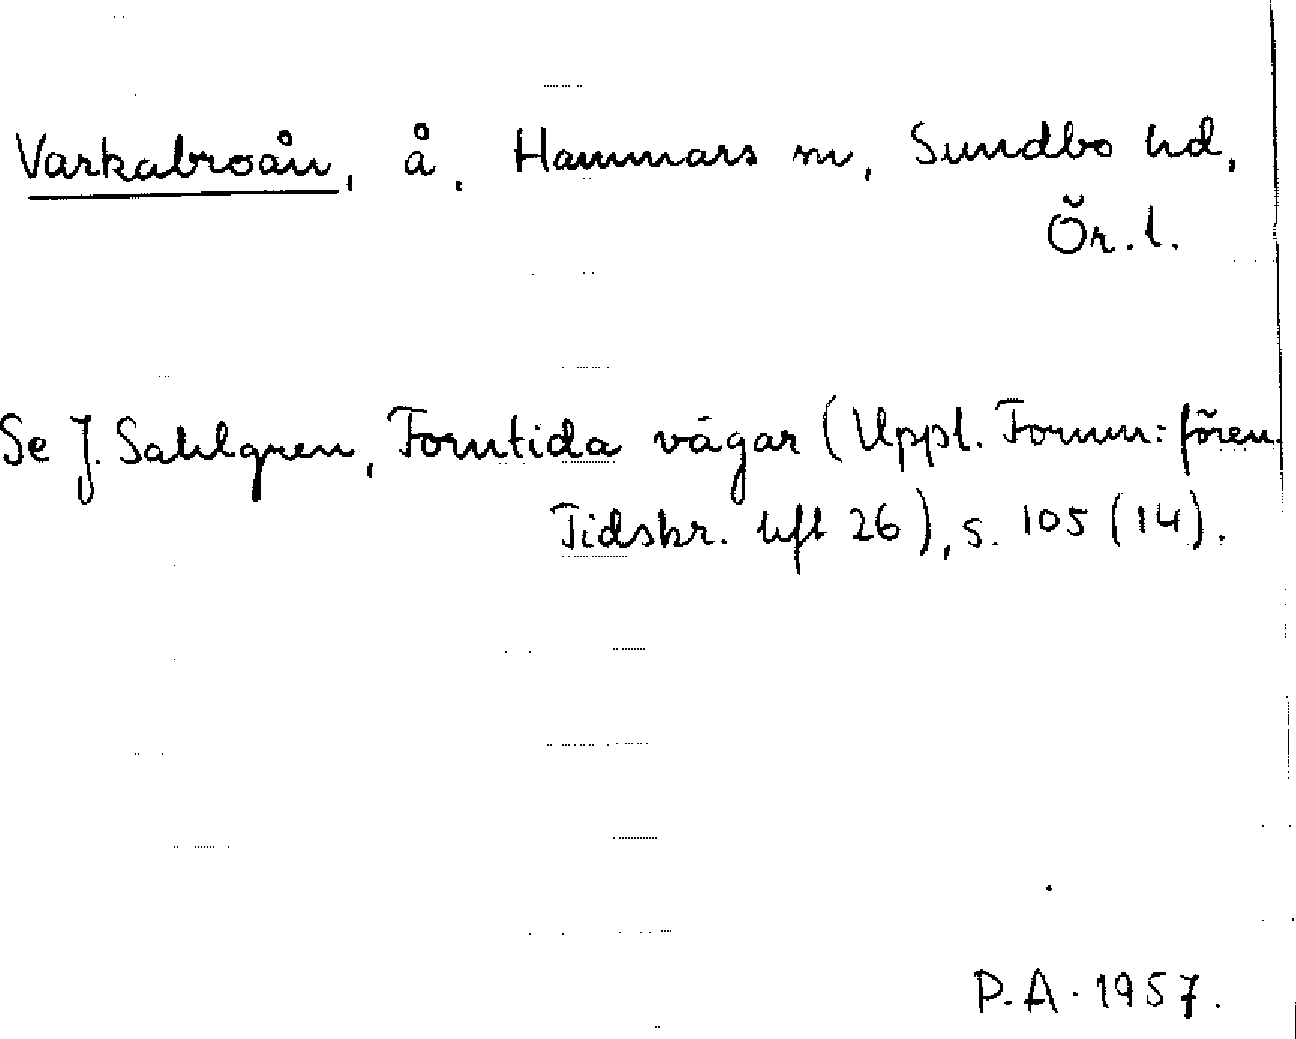 Varkabroån, å, Hammars sn, Sundbo hd,
Ör. l.
Se J. Sahlgren, Forntida vägar (Uppl. Fornm:fören.
Tidskr. hft 26), s. 105 (14).
P.A. 1957.